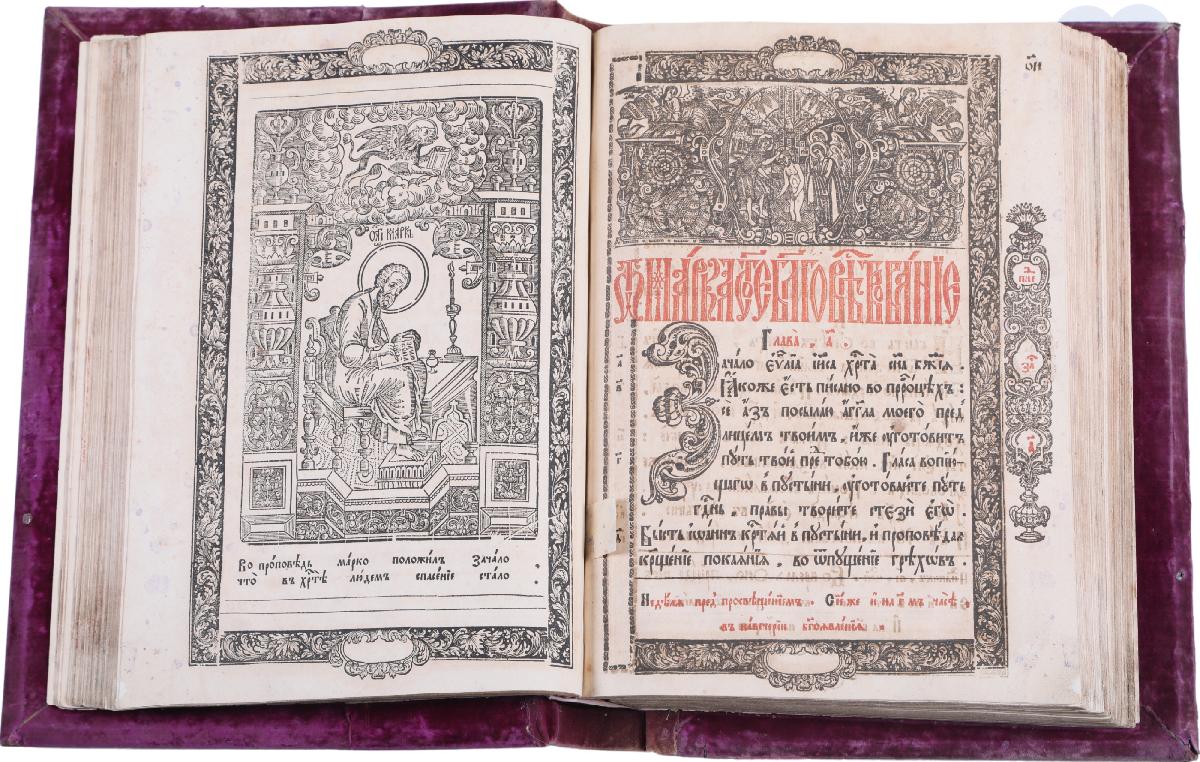 СТ҃Ы МАРКО
Е
Е
Во про́повѣдь ма́рко положи́лъ Зача́ло
что̀ въ хр҃тѣ̀ лю́демъ спасе́нїе ста́ло .
ѿ марка ст҃о́е бл҃говѣствова́нїе
Глава̀ , а҃ .
Зача́ло є҆ѵⷢ҇лїа і҆и҃са хр҃та̀ сн҃а бж҃їѧ .
Ꙗ҆́коже є҆́сть пи́сано во прⷪ҇ро́цѣхъ :
сѐ а҆́зъ посыла́ю а҆́гг҃ла моего̀ пред̾
лице́мъ твои́мъ , и҆́же ᲂу҆гото́витъ
пꙋ́ть тво́й пре́д̾ тобо́ю . Гла́съ вопїю́-
щагѡ в̾ пꙋсты́ни , ᲂу҆гото́вайте пꙋ́ть
гдⷭ҇нь , пра́вы твори́те стезѝ є҆гѡ̀ .
Бы́сть і҆ѡа́ннъ кр҃ста́й в̾ пꙋсты́ни , и҆ проповѣ́даѧ
кр҃ще́нїе покаѧ́нїѧ , во ѿпꙋще́нїе грѣхѡ́въ .
Недѣ́лѧ пред̾ просвѣще́нїемъ . Се́ же и҆ на часѣ̀
въ наве́черїи бг҃оѧвле́нїѧ .
за҃
а҃